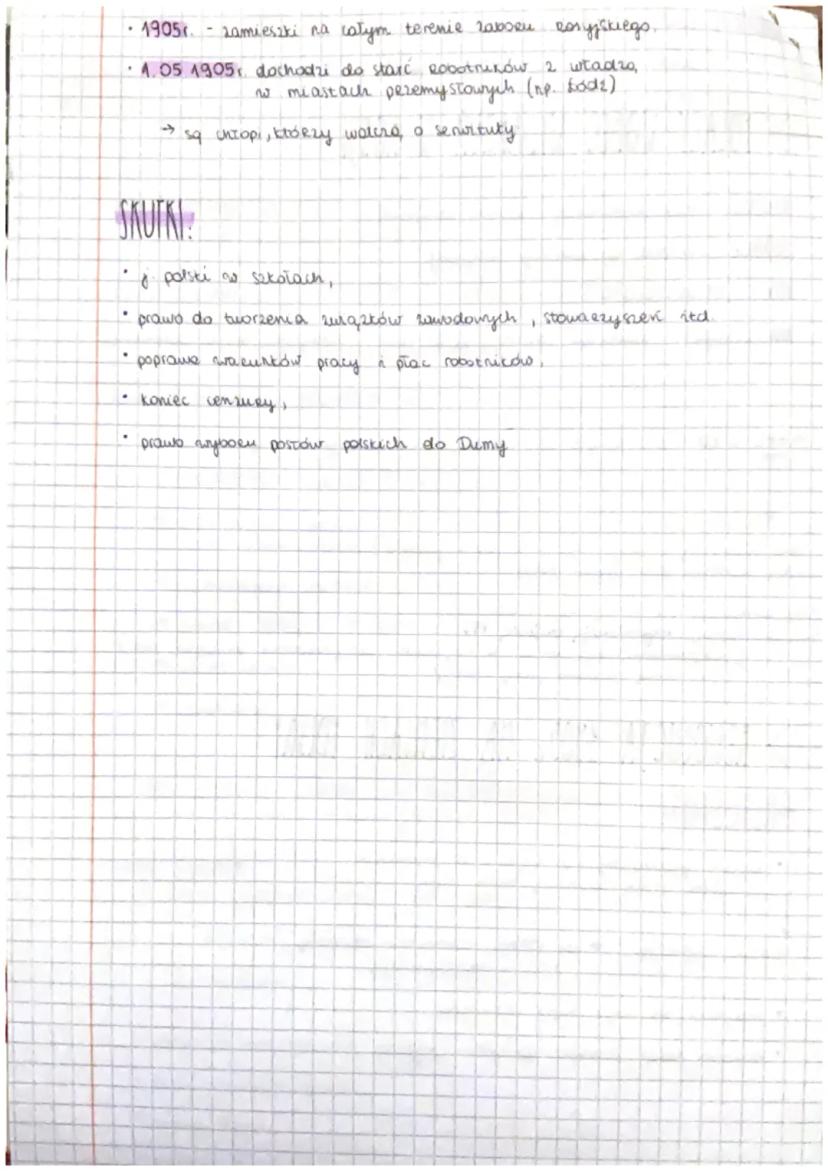 • 1905r. - zamieszki na całym terenie zaboru rosyjskiego.
• 1.05 1905r. dochodzi do starć robotników z władzą,
w miastach przemysłowych (np. Łódź)
→ są chłopi, którzy walczą o serwituty
SKUTKI:
• j. polski w szkołach,
• prawo do tworzenia związków zawodowych, stowarzyszeń itd.
• poprawa warunków pracy i płac robotników,
• koniec cenzury,
• prawo wyboru posłów polskich do Dumy